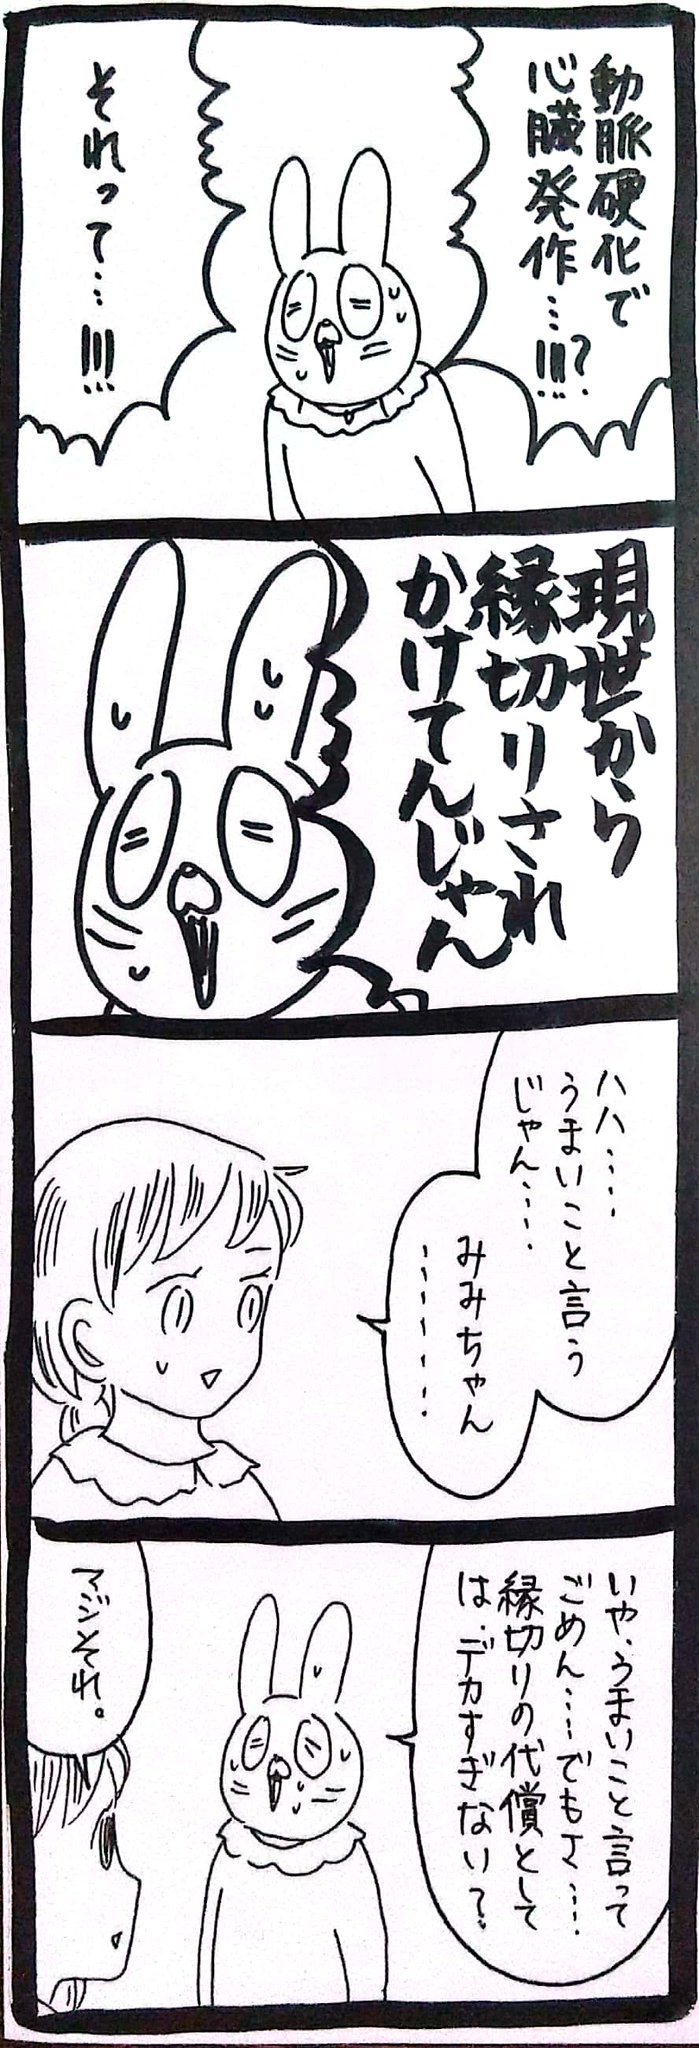 動脈硬化で
心臓発作…!!!?
それって…!!!
現世から
縁切りされ
かけてんじゃん
ハハ……
うまいこと言う
じゃん……
みみちゃん
………
いや、うまいこと言って
ごめん……でもさ……
縁切りの代償として
は、デカすぎない?
マジそれ。